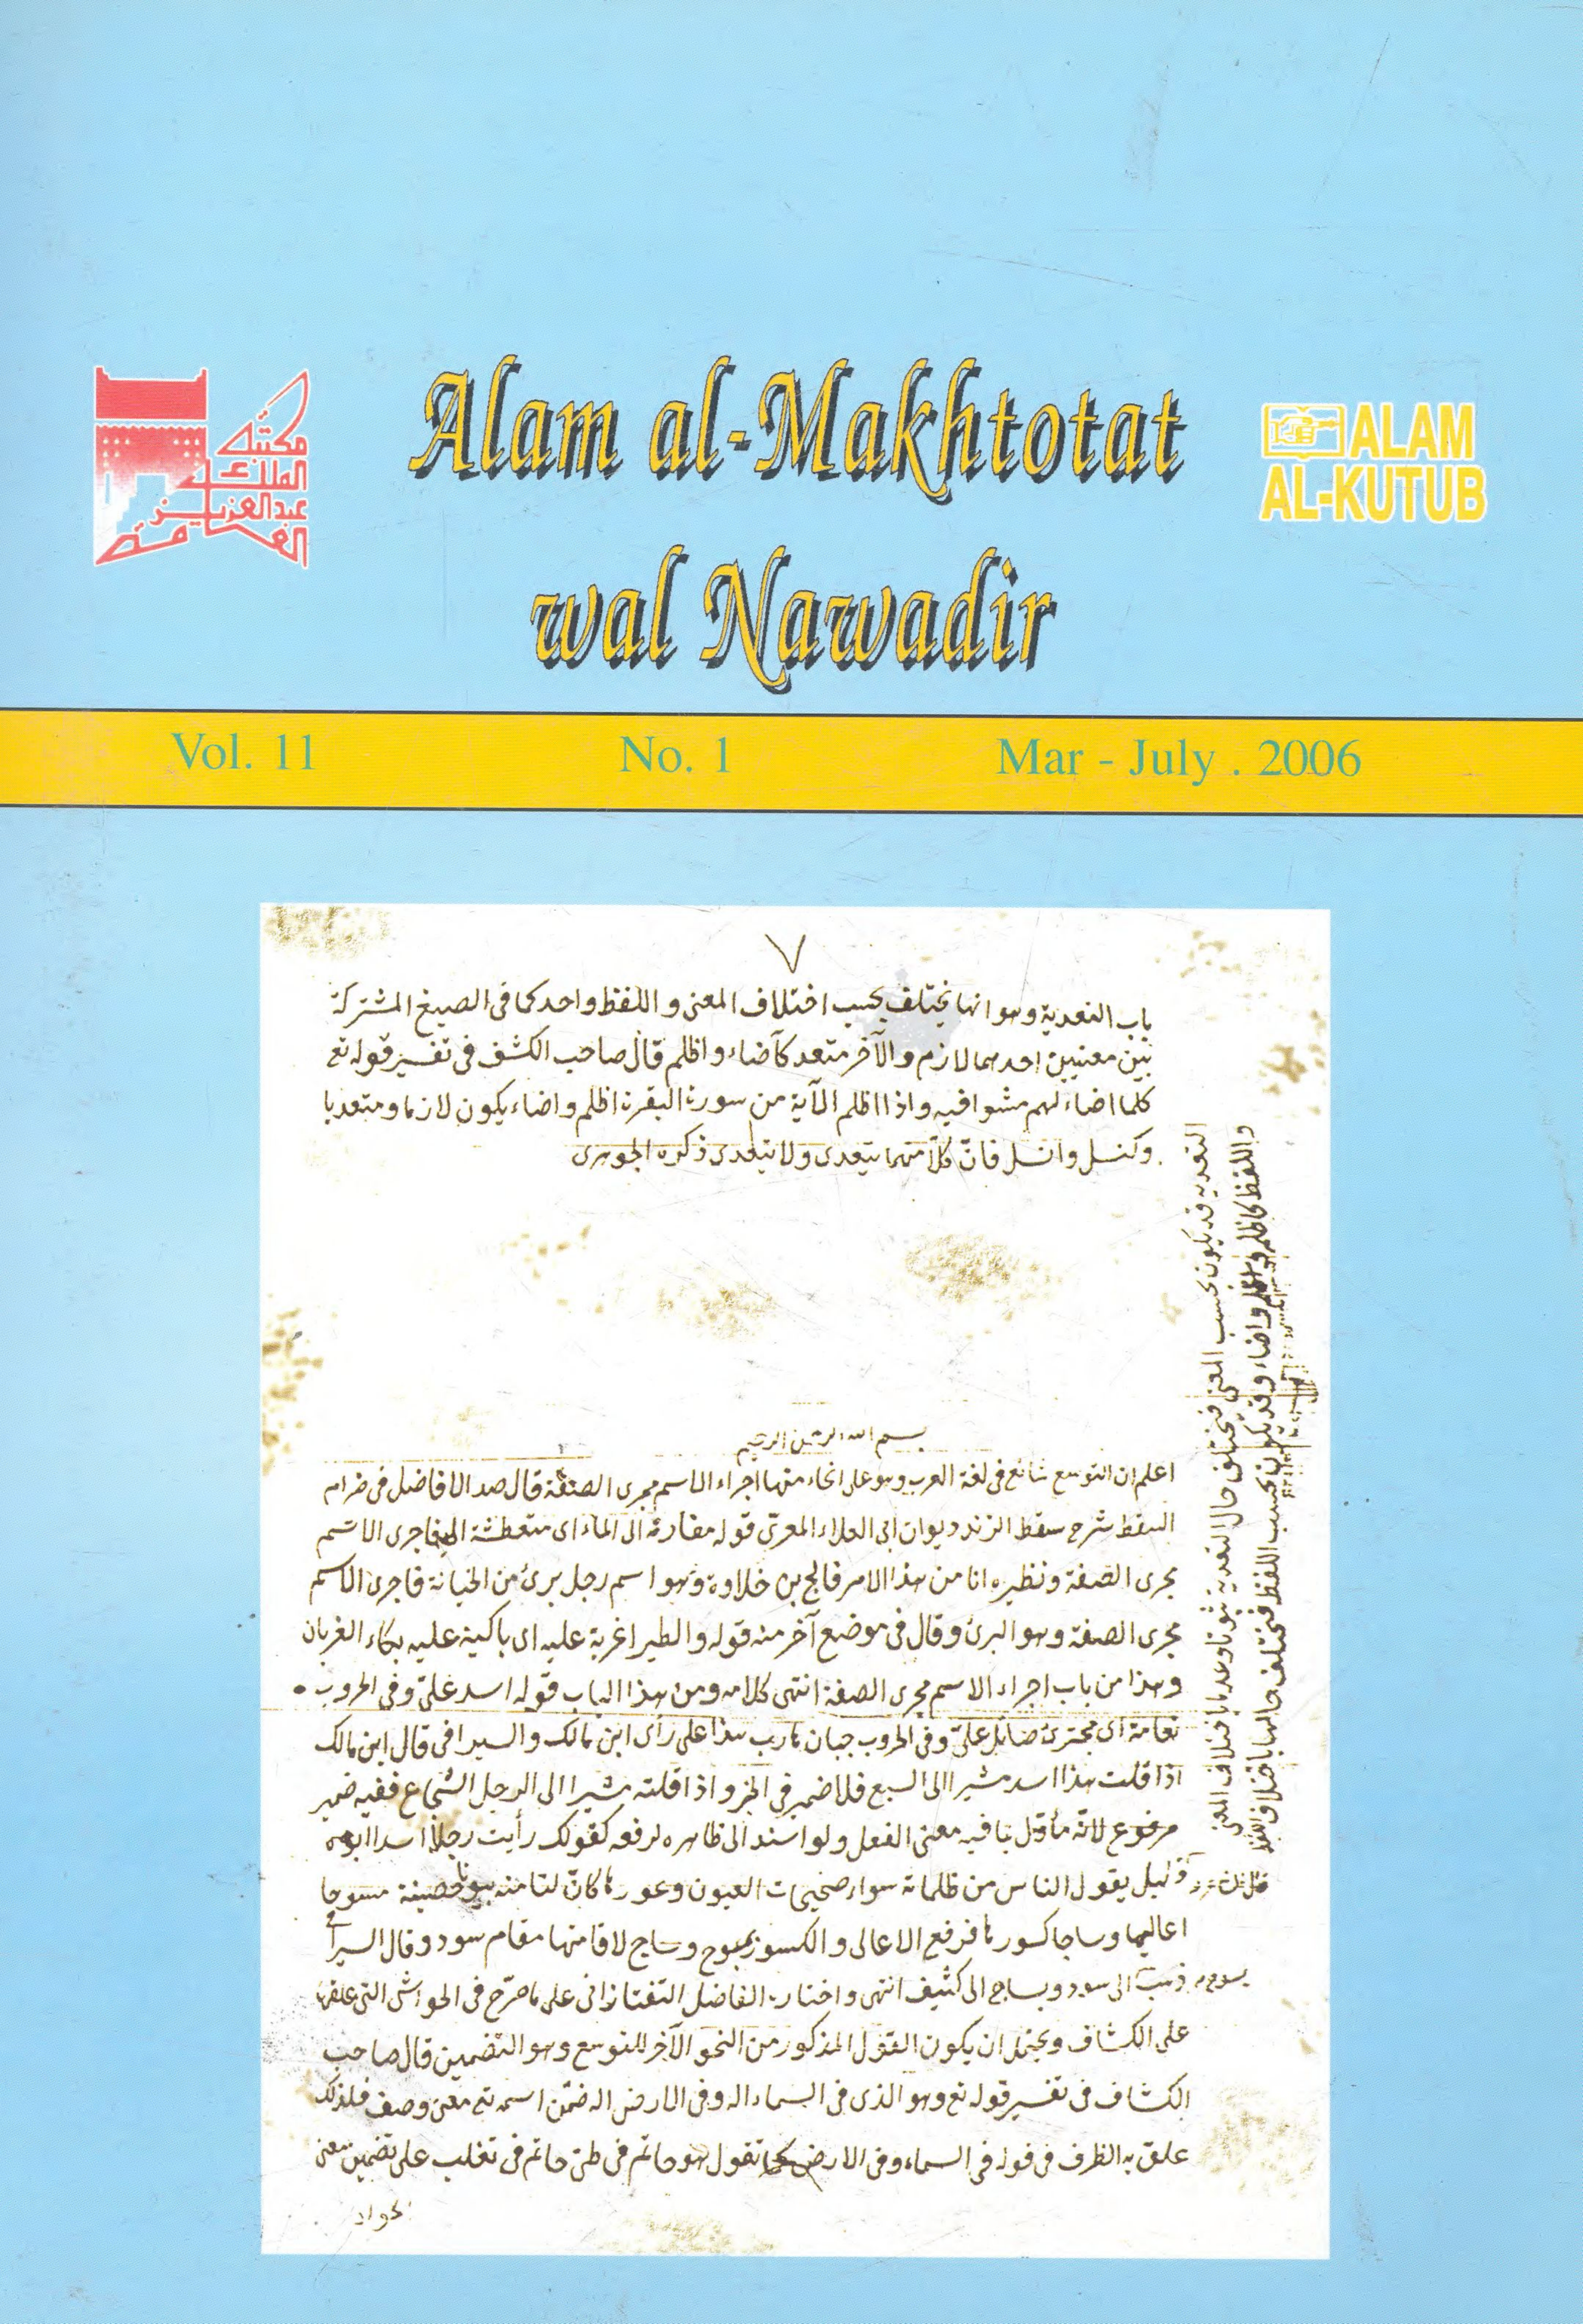 Alam al-Makhtotat
wal Nawadir
مكتبة
الملك
عبدالعزيز
العامة
ALAM
AL-KUTUB
Vol. 11 No. 1 Mar - July . 2006
٧
باب التعدية وهو انها يختلف بحسب اختلاف المعنى واللفظ واحد كما فى الصيغ المشتركة
بين معنيين احدهما لازم والآخر متعد كاضاء واظلم قال صاحب الكشف فى تفسير قوله تع
كلما اضاء لهم مشوا فيه واذا اظلم الآية من سورة البقرة اظلم واضاء يكون لازما ومتعديا
وكنسل وانسل فان كلا منهما يتعدى ولا يتعدى ذكره الجوهرى
بسم الله الرحمن الرحيم
اعلم ان التوسع شائع فى لغة العرب وهو على انحاء منها اجراء الاسم مجرى الصفة قال صدر الافاضل فى ضرام
السقط شرح سقط الزند ديوان ابى العلاء المعرى قوله الى الماء اى متعطشة اليه فاجرى الاسم
مجرى الصفة ونظيره انا من هذا الامر فالج بن خلاوة وهو اسم رجل برئ من الخيانة فاجرى الاسم
مجرى الصفة وهو البرئ وقال فى موضع آخر منه قوله والطير اغربة عليه اى باكية عليه بكاء الغربان
وهذا من باب اجراء الاسم مجرى الصفة انتهى كلامه ومن هذا الباب قوله اسد علىّ وفى الحروب
نعامة اى مجترئ صائل علىّ وفى الحروب جبان هارب هذا على رأى ابن مالك والسيرافى قال ابن مالك
اذا قلت هذا اسد مشيرا الى السبع فلا ضمير فى الخبر واذا قلته مشيرا الى الرجل الشجاع ففيه ضمير
مرفوع لانه مأوّل بما فيه معنى الفعل ولو اسند الى ظاهر لرفعه كقولك رأيت رجلا اسدا ابوه
وليل يقول الناس من ظلماته سواء صحيحات العيون وعورها كان لنا منه بيوتا حصينة مسوحا
اعاليها وساجا كسورها فرفع الاعالى والكسور بمسوح وساج لاقامتها مقام سود وقال السيرافى
ذهب الى سود وبساج الى كثيف انتهى واختاره الفاضل التفتازانى على ما صرّح فى الحواشى التى علقها
على الكشاف ويحتمل ان يكون القول المذكور من النحو الآخر للتوسع وهو التضمين قال صاحب
الكشاف فى تفسير قوله تع وهو الذى فى السماء اله وفى الارض اله ضمّن اسمه تع معنى وصف فلذلك
علق به الظرف فى قوله فى السماء وفى الارض كما تقول هو حاتم فى طى حاتم فى تغلب على تضمين معنى
الجواد
التعدية قد يكون بحسب المعنى فيختلف حال التعدية باختلاف المعنى
واللفظ كاظلم واضاء وقد يكون بحسب اللفظ فيختلف حالها باختلاف اللفظ